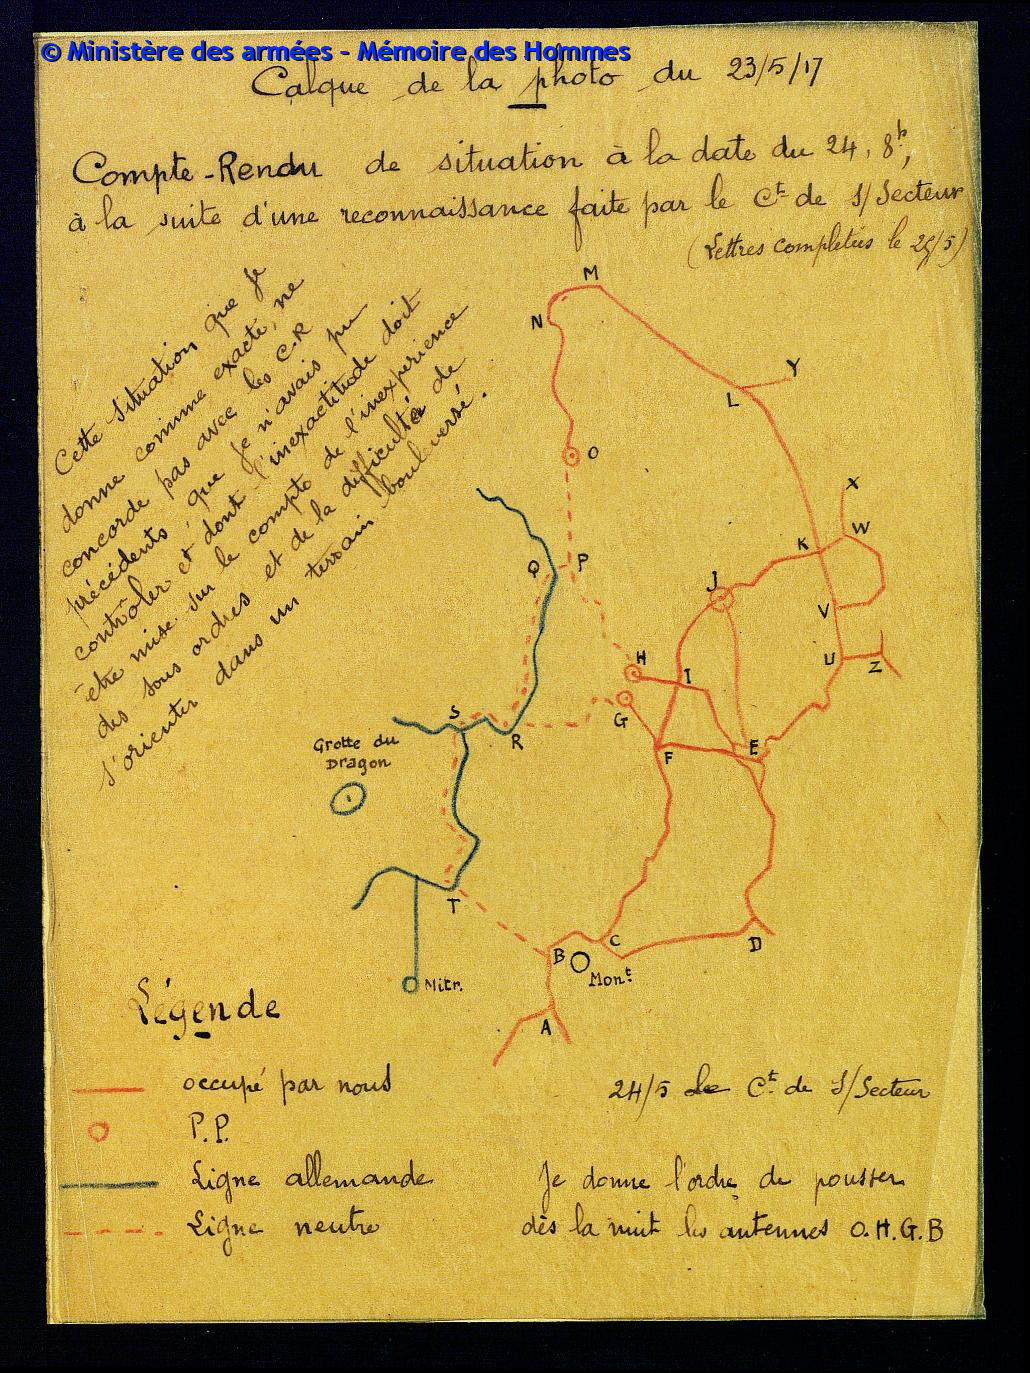 © Ministère des armées - Mémoire des Hommes
Calque de la photo du 23/5/17
Compte-Rendu de situation à la date du 24, 8h,
à la suite d'une reconnaissance faite par le Ct de S/Secteur
(Lettres complétées le 25/5)
Cette situation que je
donne comme exacte, ne
concorde pas avec les C.R
précédents, que je n'avais pu
contrôler et dont l'inexactitude doit
être mise sur le compte de l'inexpérience
des sous ordres et de la difficulté de
s'orienter dans un terrain bouleversé.
M
N
Y
L
O
X
W
K
Q
P
J
V
H
U
Z
I
G
S
R
F
E
Grotte du
Dragon
T
B
C
D
Mont
Mitr.
A
Légende
occupé par nous
P.P.
Ligne allemande
Ligne neutre
24/5 le Ct de S/Secteur
Je donne l'ordre de pousser
dès la nuit les antennes O.H.G.B